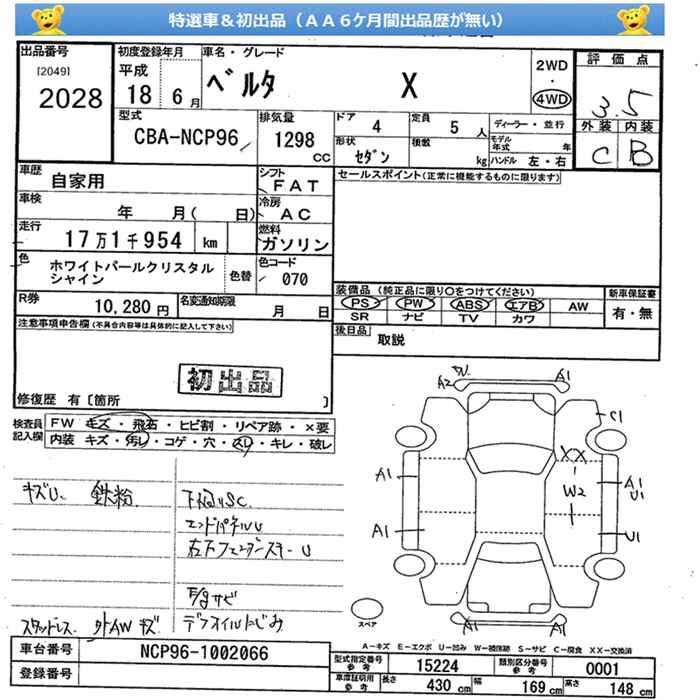 特選車＆初出品（ＡＡ６ケ月間出品歴が無い）
出品番号
[2049]
2028
初度登録年月
平成
18 6 月
車名・グレード
ベルタ X
2WD
・
4WD
評価点
3.5
外装 内装
C B
型式
CBA-NCP96
排気量
1298
CC
ドア 4
定員 5 人
形状 セダン
積数 kg
ディーラー・並行
モデル年式 年
ハンドル 左・右
車歴
自家用
シフト
FAT
セールスポイント(正常に機能するものに限ります)
車検
年 月( 日)
冷房
AC
走行
17万1千954 km
燃料
ガソリン
色
ホワイトパールクリスタル
シャイン
色替
色コード
070
装備品(純正品に限り○をつけてください)
PS PW ABS エアB AW
SR ナビ TV カワ
新車保証書
有・無
R券
10,280 円
名変通知期限
月 日
後日品
取説
注意事項申告欄(不具合内容等は具体的に記入して下さい)
初出品
修復歴 有〔箇所 〕
検査員
記入欄
FW キズ・飛石・ヒビ割・リペア跡・×要
内装 キズ・汚レ・コゲ・穴・スレ・キレ・破レ
キズU 鉄粉
エンドパネルU
F/gサビ
デフオイルにじみ
スタッドレス 外AW キズ
A2 A1
C1
XX
A1
W2
A1
U1
A1
U1
A1 A1
スペア
A－キズ E－エクボ U－凹み W－補修跡 S－サビ C－腐食 XX－交換済
車台番号
NCP96-1002066
登録番号
型式指定番号
参考
15224
類別区分番号
参考
0001
車庫証明用
参考
長さ 430 cm
幅 169 cm
高さ 148 cm